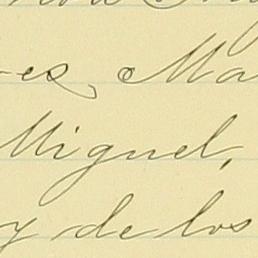 es, Ma
Miguel,
y de los